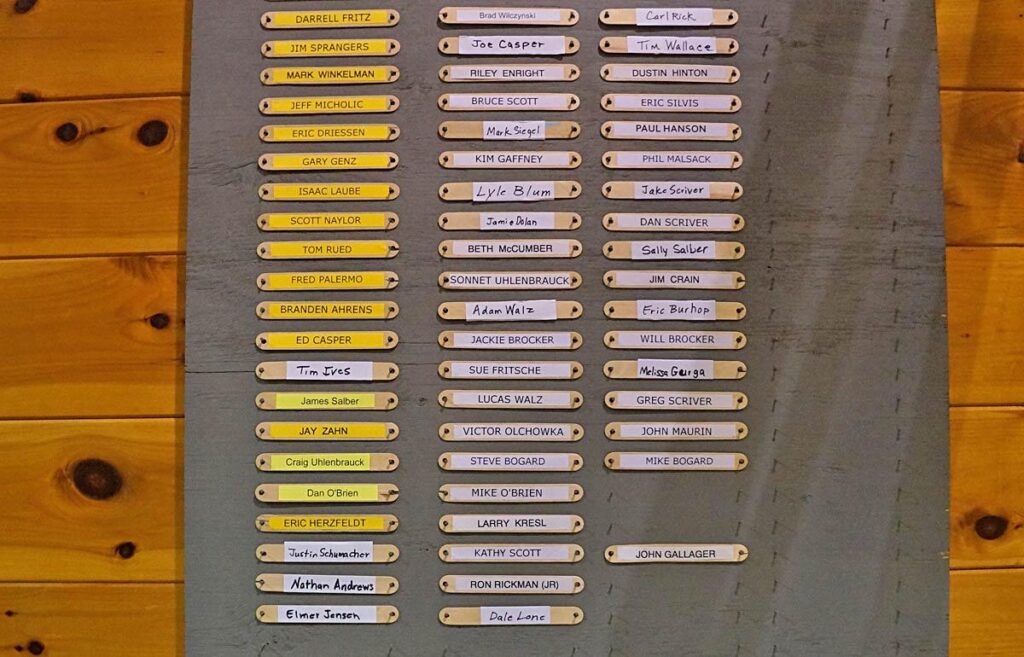 DARRELL FRITZ
JIM SPRANGERS
MARK WINKELMAN
JEFF MICHOLIC
ERIC DRIESSEN
GARY GENZ
ISAAC LAUBE
SCOTT NAYLOR
TOM RUED
FRED PALERMO
BRANDEN AHRENS
ED CASPER
Tim Ives
James Salber
JAY ZAHN
Craig Uhlenbrauck
Dan O'Brien
ERIC HERZFELDT
Justin Schumacher
Nathan Andrews
Elmer Jensen
Brad Wilczynski
Joe Casper
RILEY ENRIGHT
BRUCE SCOTT
Mark Siegel
KIM GAFFNEY
Lyle Blum
Jamie Dolan
BETH McCUMBER
SONNET UHLENBRAUCK
Adam Walz
JACKIE BROCKER
SUE FRITSCHE
LUCAS WALZ
VICTOR OLCHOWKA
STEVE BOGARD
MIKE O'BRIEN
LARRY KRESL
KATHY SCOTT
RON RICKMAN (JR)
Dale Lone
Carl Rick
Tim Wallace
DUSTIN HINTON
ERIC SILVIS
PAUL HANSON
PHIL MALSACK
Jake Scriver
DAN SCRIVER
Sally Salber
JIM CRAIN
Eric Burhop
WILL BROCKER
Melissa Gurga
GREG SCRIVER
JOHN MAURIN
MIKE BOGARD
JOHN GALLAGER